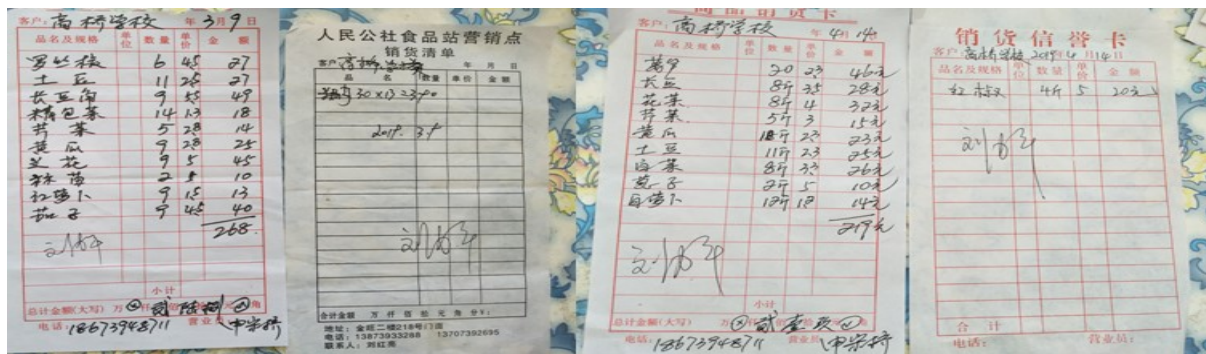 客户: 高桥学校 年 3月 9日
品名及规格 单位 数量 单价 金额
6 45 27
土豆 11 25 27
长豆角 9 55 49
精包菜 14 13 18
芹菜 5 28 14
黄瓜 9 28 25
花 9 5 45
2 5 10
红萝卜 9 15 13
茄子 9 45 40
268
小计
总计金额(大写) 万 仟 佰 元 角
电话: 18673948711 营业员 申
人民公社食品站营销点
销货清单
客户: 高桥学校 年 月 日
品名 数量 单价 金额
30×13 2390
2019. 3.9
合计金额 万 仟 佰 拾 元 角 分 ¥:
地址: 金旺二楼218号门面
电话: 13873933288 13707392695
联系人: 刘红亮
客户: 高桥学校 年 4月 14日
品名及规格 单位 数量 单价 金额
20 23 46元
长豆 8斤 35 28元
花菜 8斤 4 32元
芹菜 5斤 3 15元
黄瓜 10斤 23 23元
土豆 11斤 23 25元
白菜 8斤 33 26元
茄子 2斤 5 10元
白萝卜 12斤 12 14元
219元
小计
总计金额(大写) 万 贰 壹 玖 角
电话: 18673948711 营业员 申
销货信誉卡
客户: 高桥学校 2019年 4月 14日
品名及规格 单位 数量 单价 金额
红椒 4斤 5 20元
合计
电话: 营业员: